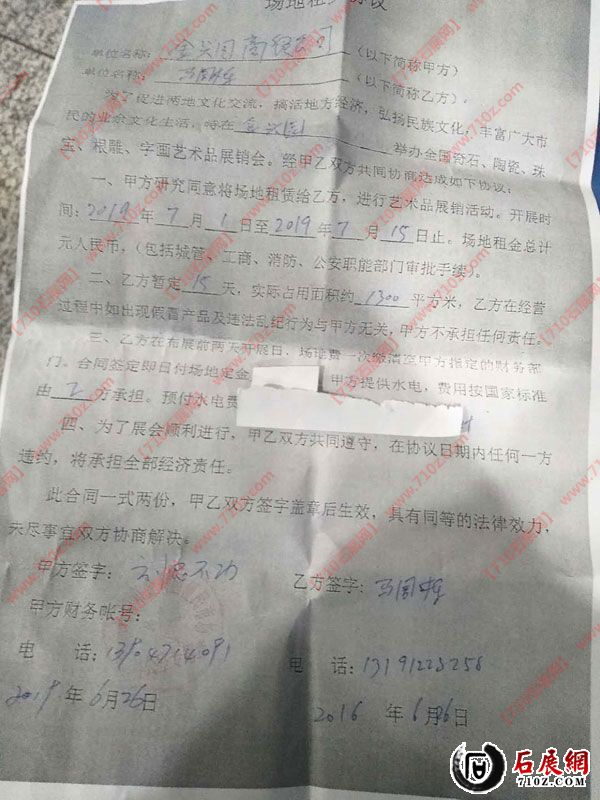 场地租
议
单位名称: 金兴园商贸公司 (以下简称甲方)
单位名称: (以下简称乙方).
为了促进两地文化交流, 搞活地方经济, 弘扬民族文化, 丰富广大市
民的业余文化生活, 特在 金兴园 举办全国奇石、陶瓷、珠
宝、根雕、字画艺术品展销会。经甲乙双方共同协商达成如下协议:
一、甲方研究同意将场地租赁给乙方, 进行艺术品展销活动。开展时
间: 2019 年 7 月 1 日至 2019 年 7 月 15 日止。场地租金总计
元人民币, (包括城管、工商、消防、公安职能部门审批手续)。
二、乙方暂定 15 天, 实际占用面积约 1300 平方米, 乙方在经营
过程中如出现假冒产品及违法乱纪行为与甲方无关, 甲方不承担任何责任。
三、乙方在布展前两天开展日, 场地费一次缴清至甲方指定的财务部
门。合同签定即日付场地定金 甲方提供水电, 费用按国家标准
由 乙 方承担。预付水电费
四、为了展会顺利进行, 甲乙双方共同遵守, 在协议日期内任何一方
违约, 将承担全部经济责任。
此合同一式两份, 甲乙双方签字盖章后生效, 具有同等的法律效力,
未尽事宜双方协商解决。
甲方签字: 乙方签字:
甲方财务帐号:
电 话: 13904714091 电 话: 13191223258
2019 年 6月26日 2016 年 6月26日
【710z石展网】 www.710z.com
石展網
710Z.COM